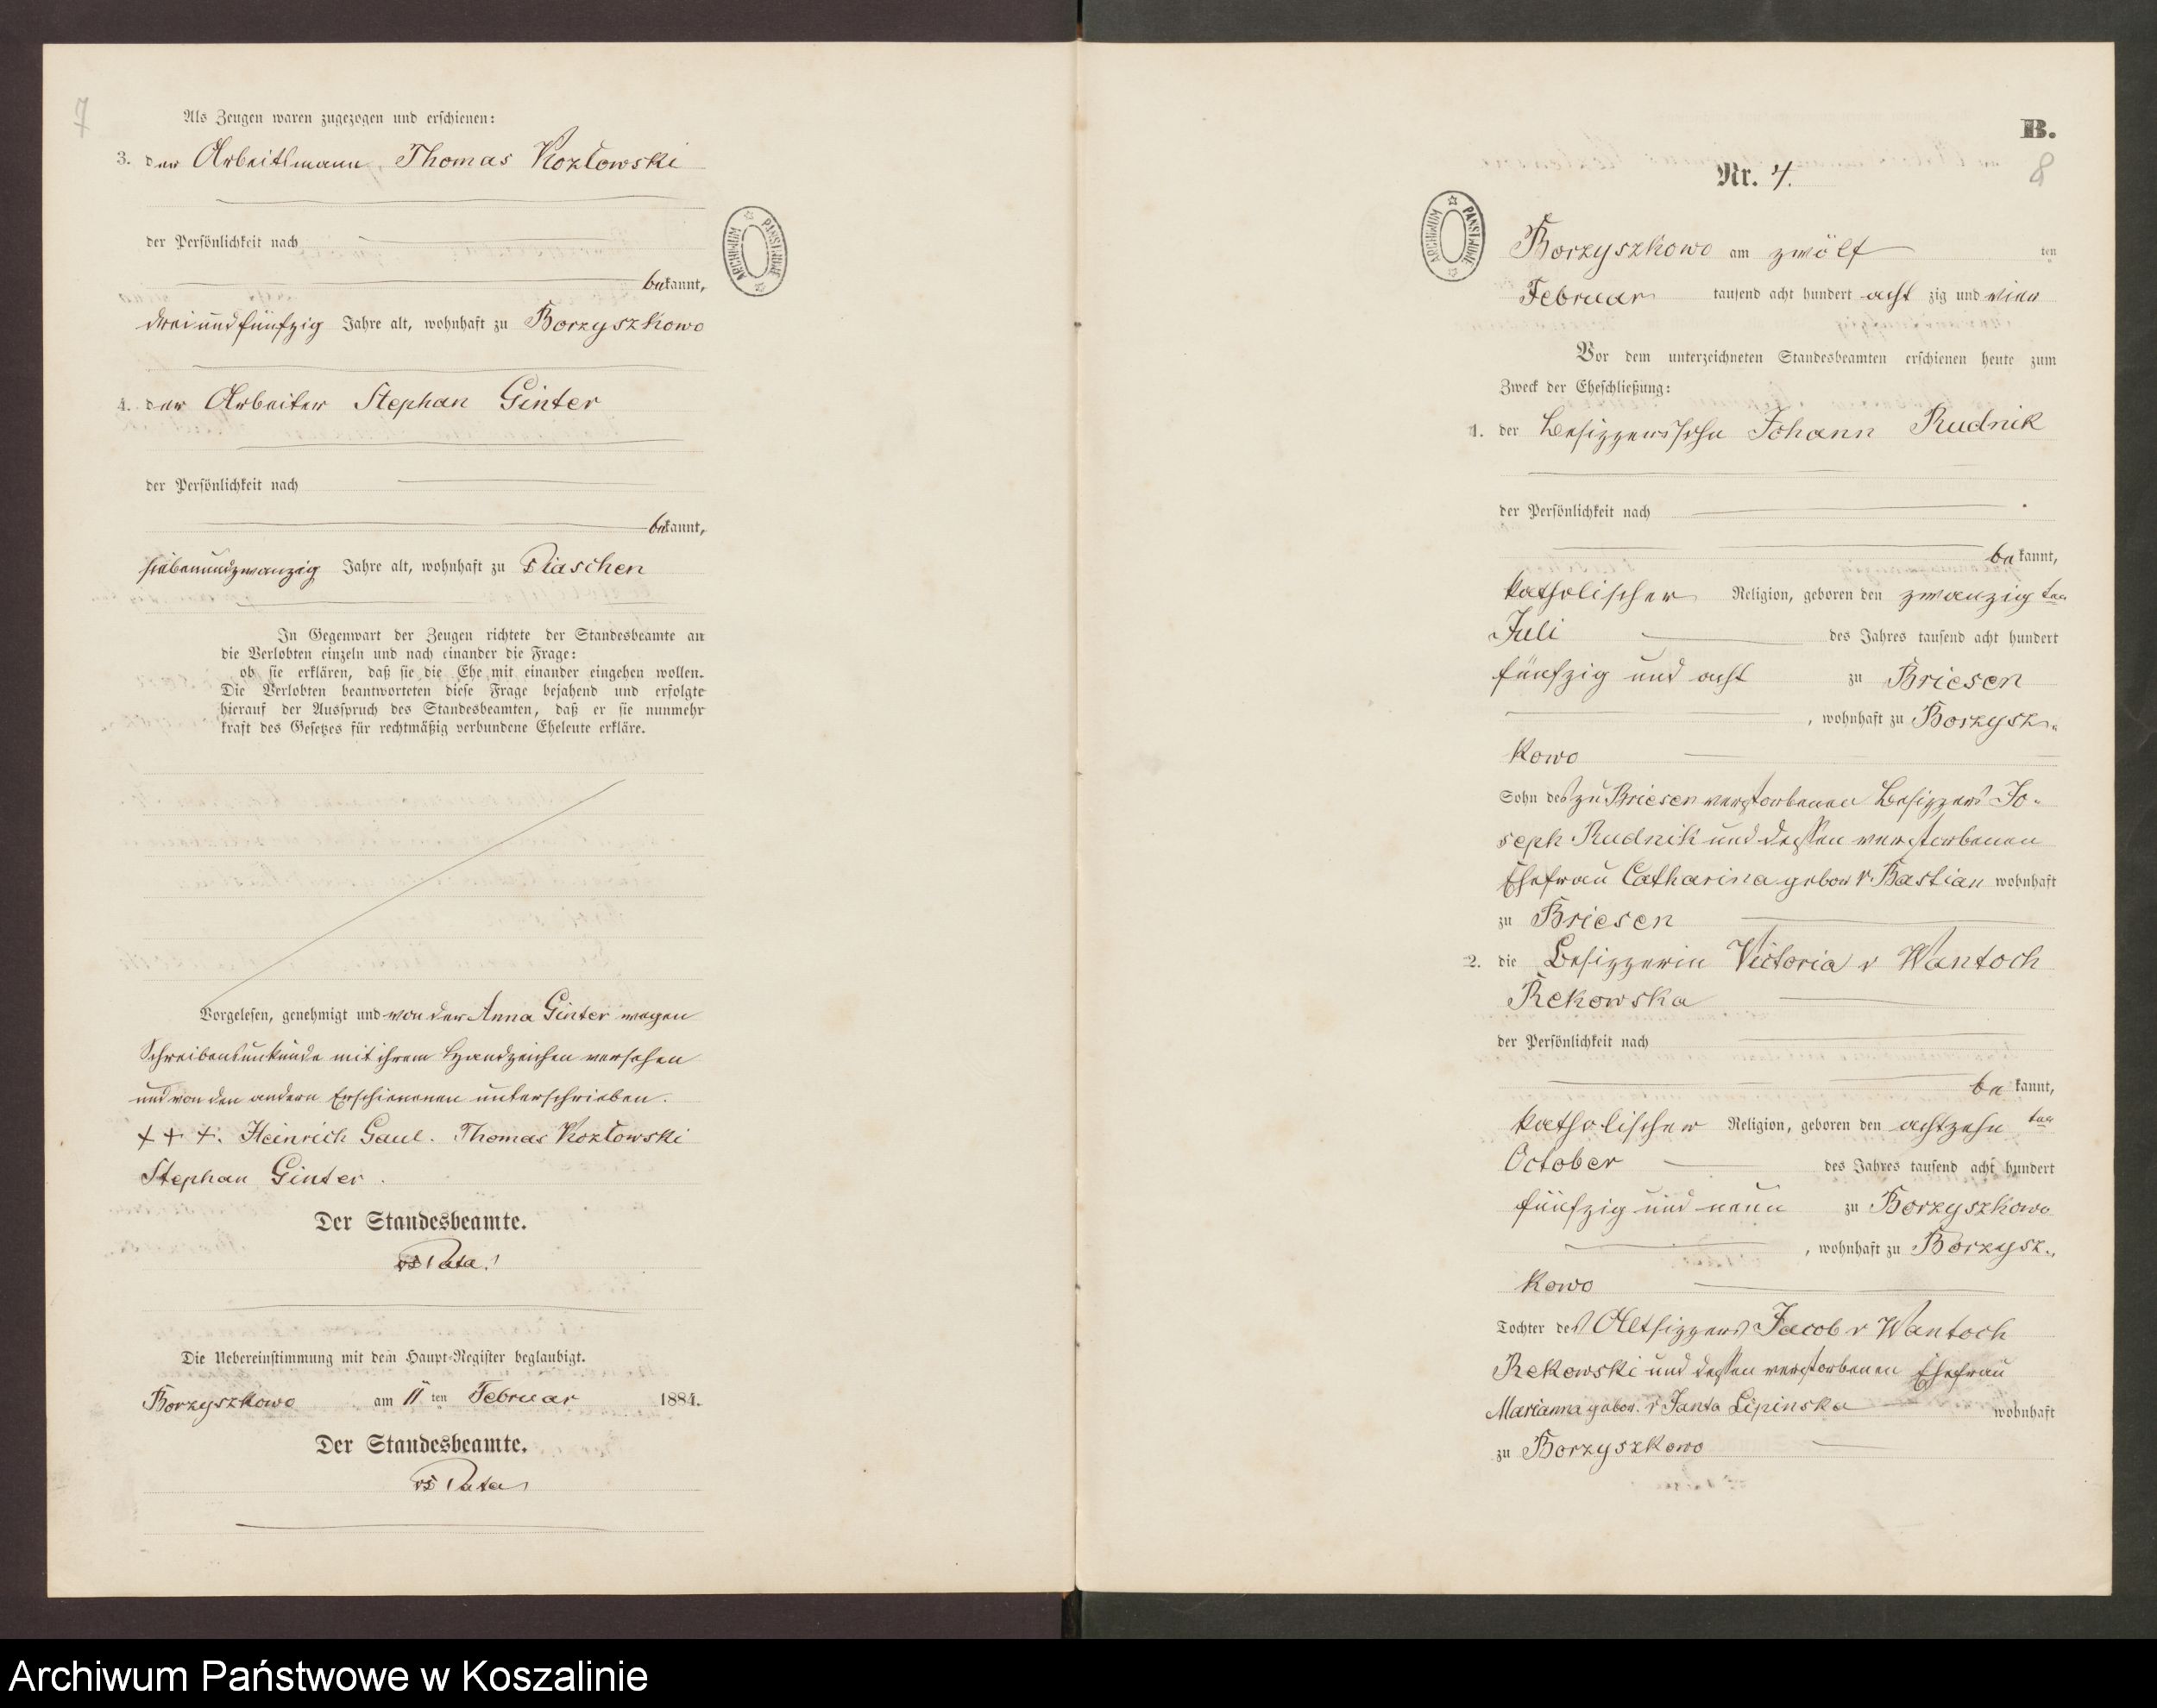 7
Als Zeugen waren zugezogen und erschienen:
3. der Arbeitsmann Thomas Kozłowski
der Persönlichkeit nach
bekannt,
dreiundfünfzig Jahre alt, wohnhaft zu Borzyszkowo
4. der Arbeiter Stephan Ginter
der Persönlichkeit nach
bekannt,
siebenundzwanzig Jahre alt, wohnhaft zu Piaschen
In Gegenwart der Zeugen richtete der Standesbeamte an
die Verlobten einzeln und nach einander die Frage:
ob sie erklären, daß sie die Ehe mit einander eingehen wollen.
Die Verlobten beantworteten diese Frage bejahend und erfolgte
hierauf der Ausspruch des Standesbeamten, daß er sie nunmehr
kraft des Gesetzes für rechtmäßig verbundene Eheleute erkläre.
Vorgelesen, genehmigt und von der Anna Ginter wegen
Schreibensunkunde mit ihrem Handzeichen versehen
und von den andern Erschienenen unterschrieben.
+ + +. Heinrich Gaul. Thomas Kozłowski
Stephan Ginter.
Der Standesbeamte.
Die Uebereinstimmung mit dem Haupt-Register beglaubigt.
Borzyszkowo am 11 ten Februar 1884.
Der Standesbeamte.
B.
8
Nr. 4.
Borzyszkowo am zwölf ten
Februar tausend acht hundert acht zig und vier
Vor dem unterzeichneten Standesbeamten erschienen heute zum
Zweck der Eheschließung:
1. der Besitzerssohn Johann Rudnik
der Persönlichkeit nach
be kannt,
katholischer Religion, geboren den zwanzig ten
Juli des Jahres tausend acht hundert
fünfzig und acht zu Briesen
, wohnhaft zu Borzysz-
kowo
Sohn des zu Briesen verstorbenen Besitzers Jo-
seph Rudnik und dessen verstorbenen
Ehefrau Catharina gebor v. Bastian wohnhaft
zu Briesen
2. die Besitzerin Victoria v Wantoch
Rekowska
der Persönlichkeit nach
be kannt,
katholischer Religion, geboren den achtzehn ten
October des Jahres tausend acht hundert
fünfzig und neun zu Borzyszkowo
, wohnhaft zu Borzysz-
kowo
Tochter des Altsitzers Jacob v Wantoch
Rekowski und dessen verstorbenen Ehefrau
Marianna gebor. v Janta Lipinska wohnhaft
zu Borzyszkowo
ARCHIWUM PAŃSTWOWE
ARCHIWUM PAŃSTWOWE
Archiwum Państwowe w Koszalinie